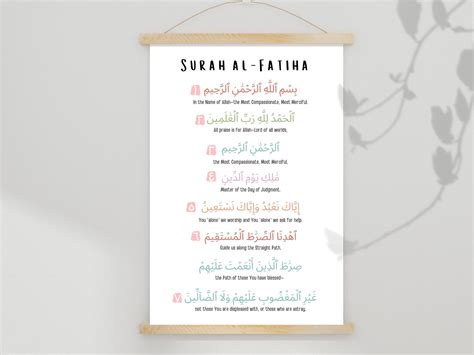 SURAH AL-FATIHA
١ بِسْمِ ٱللَّهِ ٱلرَّحْمَٰنِ ٱلرَّحِيمِ
In the Name of Allah—the Most Compassionate, Most Merciful.
٢ ٱلْحَمْدُ لِلَّهِ رَبِّ ٱلْعَٰلَمِينَ
All praise is for Allah—Lord of all worlds,
٣ ٱلرَّحْمَٰنِ ٱلرَّحِيمِ
the Most Compassionate, Most Merciful,
٤ مَٰلِكِ يَوْمِ ٱلدِّينِ
Master of the Day of Judgment.
٥ إِيَّاكَ نَعْبُدُ وَإِيَّاكَ نَسْتَعِينُ
You ˹alone˺ we worship and You ˹alone˺ we ask for help.
٦ ٱهْدِنَا ٱلصِّرَٰطَ ٱلْمُسْتَقِيمَ
Guide us along the Straight Path,
صِرَٰطَ ٱلَّذِينَ أَنْعَمْتَ عَلَيْهِمْ
the Path of those You have blessed—
٧ غَيْرِ ٱلْمَغْضُوبِ عَلَيْهِمْ وَلَا ٱلضَّآلِّينَ
not those You are displeased with, or those who are astray.